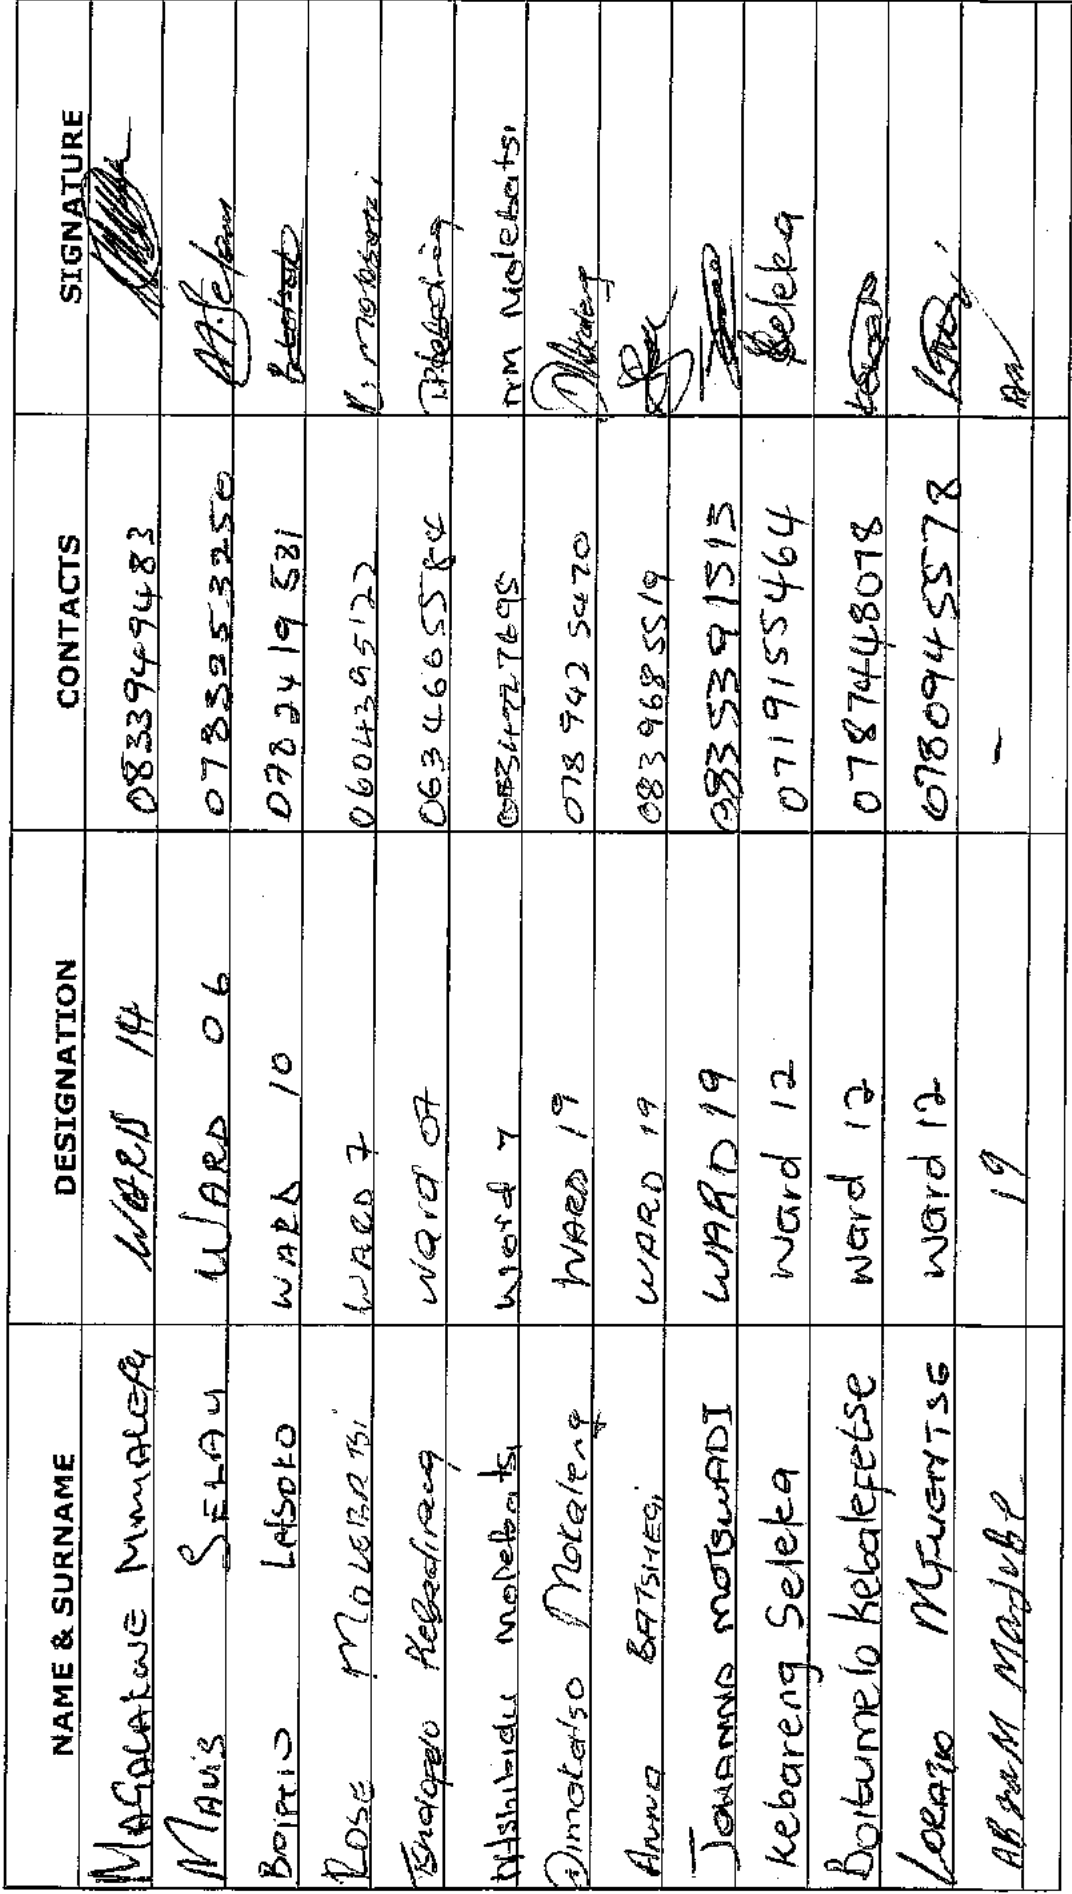 NAME & SURNAME DESIGNATION CONTACTS SIGNATURE
MAGALAKWE WARD 14 0833949483
MAVIS SELAU WARD 06 0783253250
LETSOKO WARD 10 0782419531
ROSE MOLEBATSI WARD 7 0604395122
Ward 07 0634665584
Molebatsi Word 7 MM Molebatsi
Dimakatso Mokaleng WARD 19 0789425470
Anna BATSHEGI WARD 19 0839685519
JOHANNA MOTSWADI WARD 19 0835391515
Kebareng Seleka Ward 12 0719155464 Seleka
Boitumelo Kebalefetse Ward 12 0787448078
LORATO Ward 12 0780945578
ABRAM 19 -